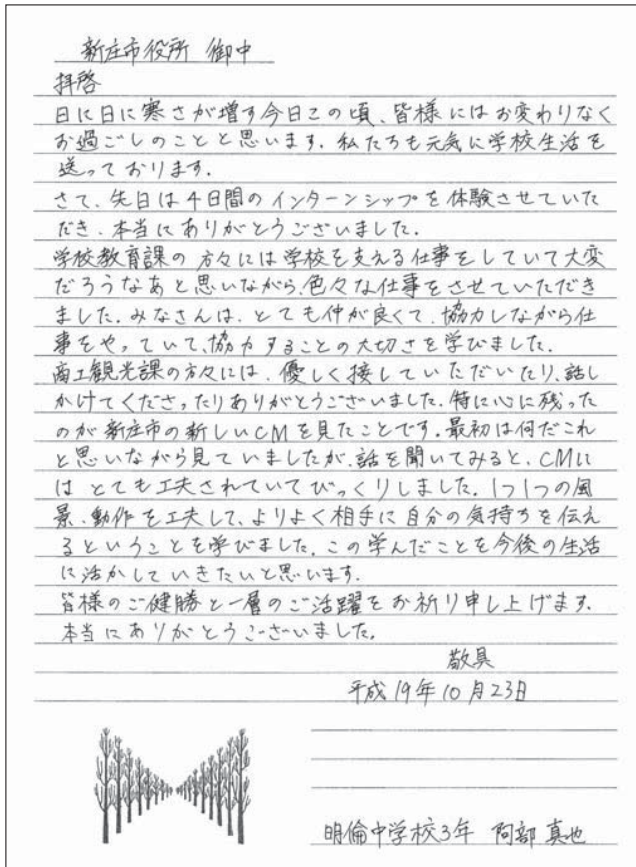 新庄市役所 御中
拝啓
日に日に寒さが増す今日この頃、皆様にはお変わりなく
お過ごしのことと思います。私たちも元気に学校生活を
送っております。
さて、先日は4日間のインターンシップを体験させていた
だき、本当にありがとうございました。
学校教育課の方々には学校を支える仕事をしていて大変
だろうなあと思いながら、色々な仕事をさせていただき
ました。みなさんは、とても仲が良くて、協力しながら仕
事をやっていて、協力することの大切さを学びました。
商工観光課の方々には、優しく接していただいたり、話し
かけてくださったりありがとうございました。特に心に残った
のが新庄市の新しいCMを見たことです。最初は何だこれ
と思いながら見ていましたが、話を聞いてみると、CMに
はとても工夫されていてびっくりしました。1つ1つの風
景、動作を工夫して、よりよく相手に自分の気持ちを伝え
るということを学びました。この学んだことを今後の生活
に活かしていきたいと思います。
皆様のご健勝と一層のご活躍をお祈り申し上げます。
本当にありがとうございました。
敬具
平成19年10月23日
明倫中学校3年 阿部 真也